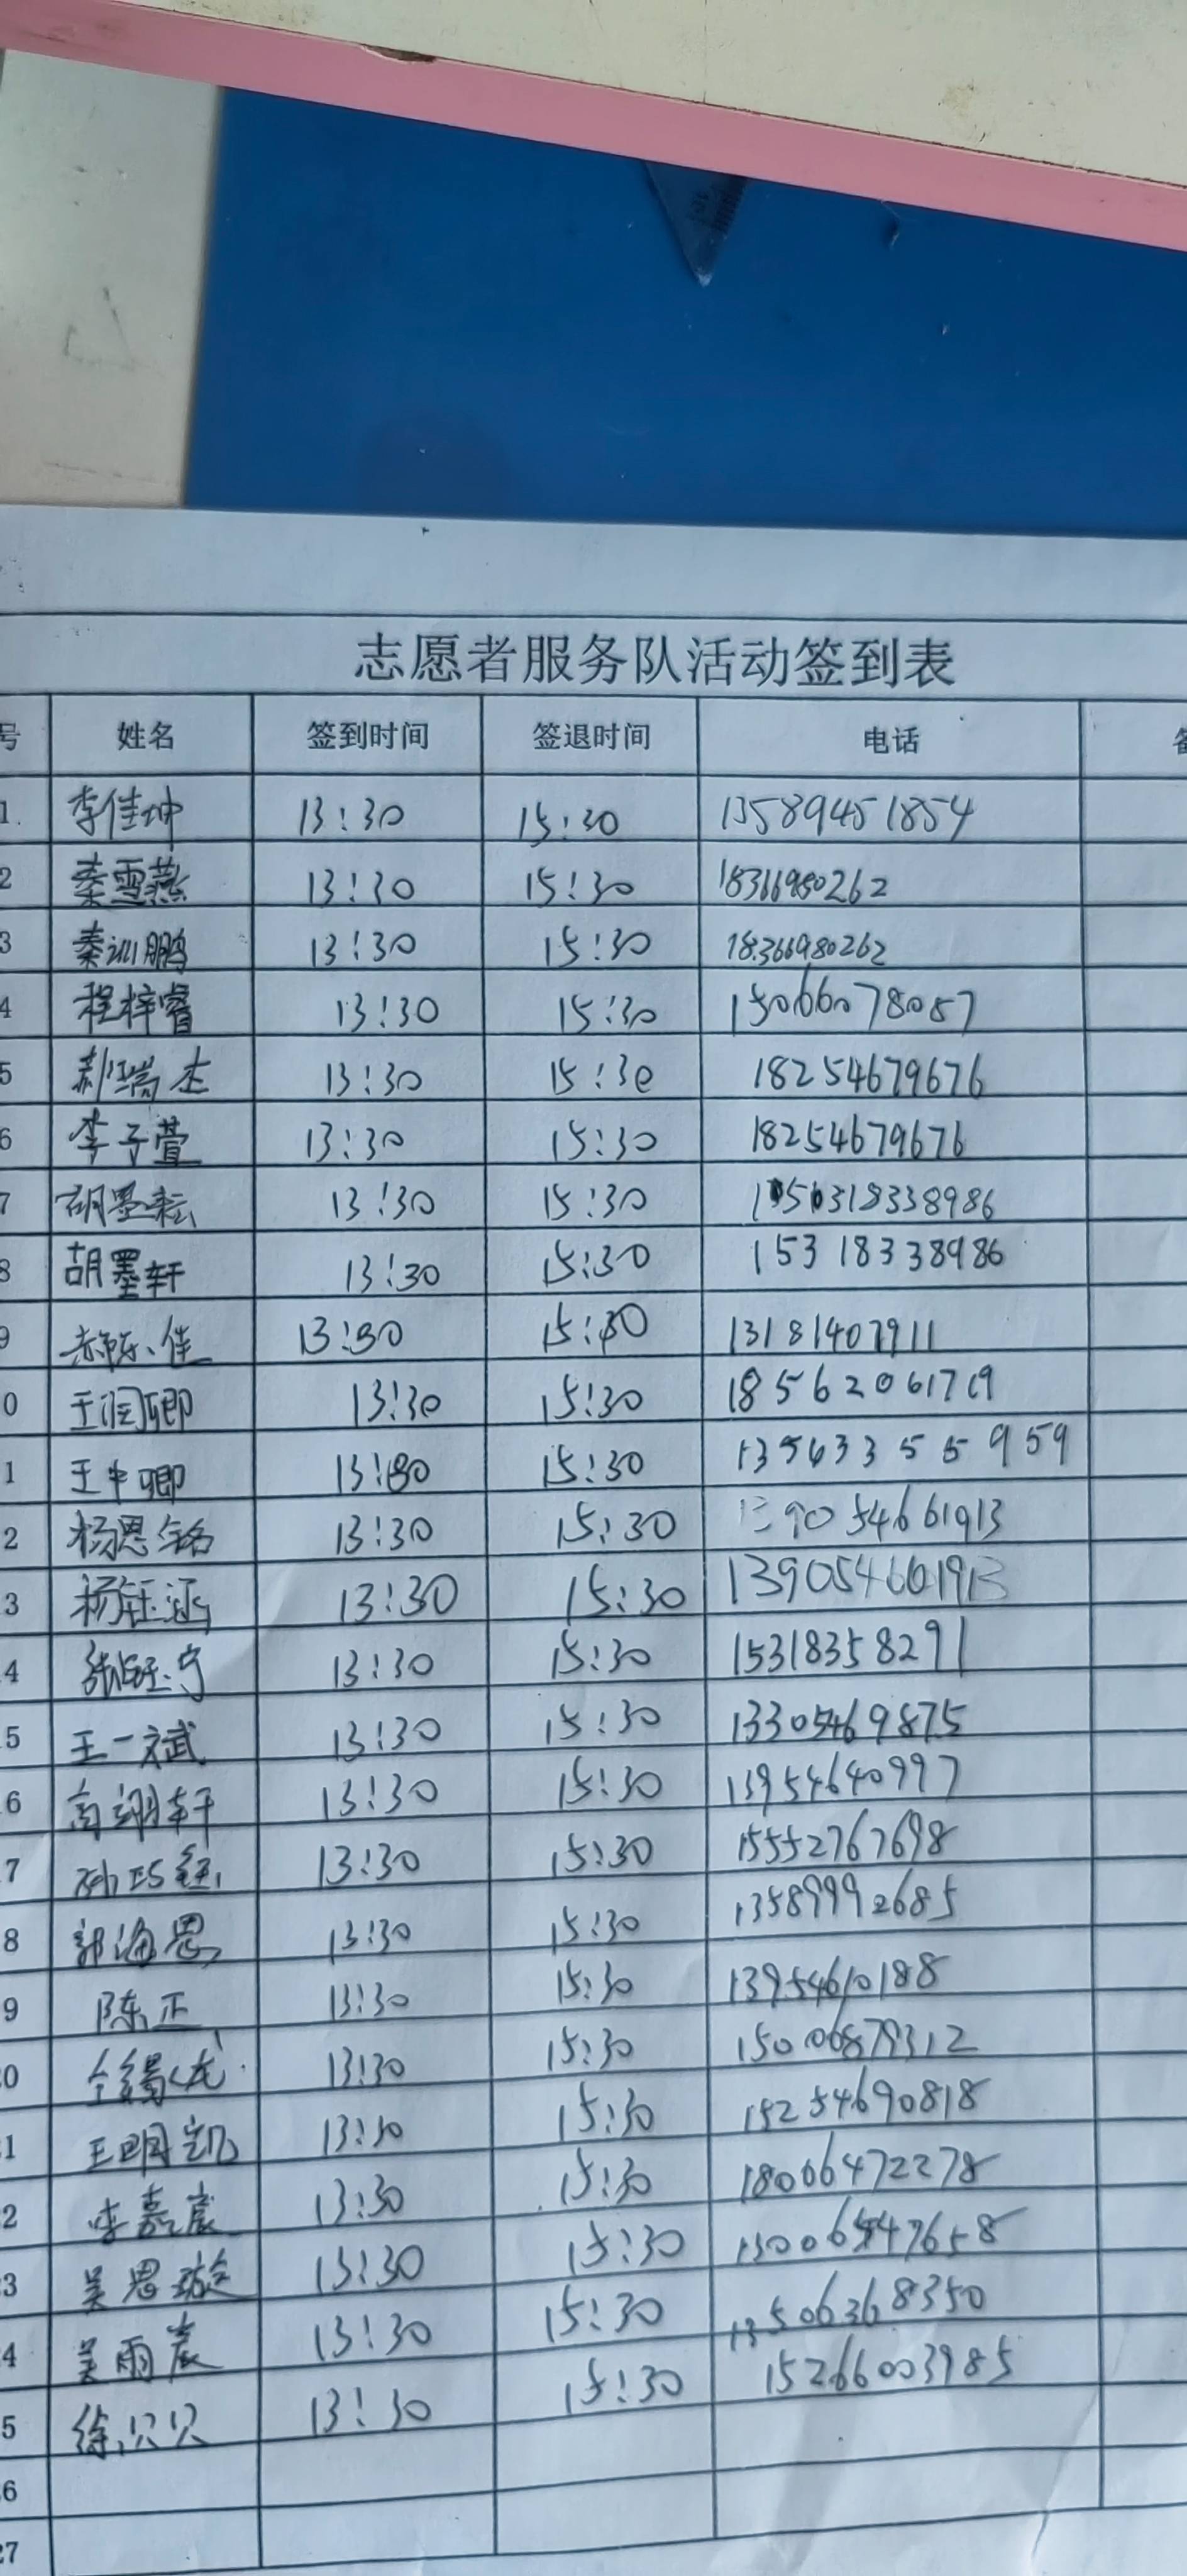 志愿者服务队活动签到表
号 姓名 签到时间 签退时间 电话
1 李佳坤 13:30 15:30 13589451854
2 秦雪燕 13:30 15:30 18366980262
3 秦训鹏 13:30 15:30 18366980262
4 程梓睿 13:30 15:30 15066078087
5 郝瑞杰 13:30 15:30 18254679676
6 李子萱 13:30 15:30 18254679676
7 胡墨耘 13:30 15:30
8 胡墨轩 13:30 15:30 15318338986
9 13:30 15:30 13181407911
0 王润卿 13:30 15:30 18562061719
1 王中卿 13:30 15:30 135633 5 5 9 59
2 杨恩铭 13:30 15:30 139054661913
3 杨钰涵 13:30 15:30 139054661913
4 张钰宁 13:30 15:30 15318358291
5 王一斌 13:30 15:30 13305469875
6 高翊轩 13:30 15:30 13954640997
7 13:30 15:30 15552767698
8 郭海恩 13:30 15:30 13589992685
9 陈正 13:30 15:30 13954610188
0 13:30 15:30 15006879312
1 王明凯 13:30 15:30 15254690818
2 李嘉宸 13:30 15:30 18006472278
3 吴思璇 13:30 15:30
4 吴雨宸 13:30 15:30
5 徐贝贝 13:30 15:30 15266003985
6
27